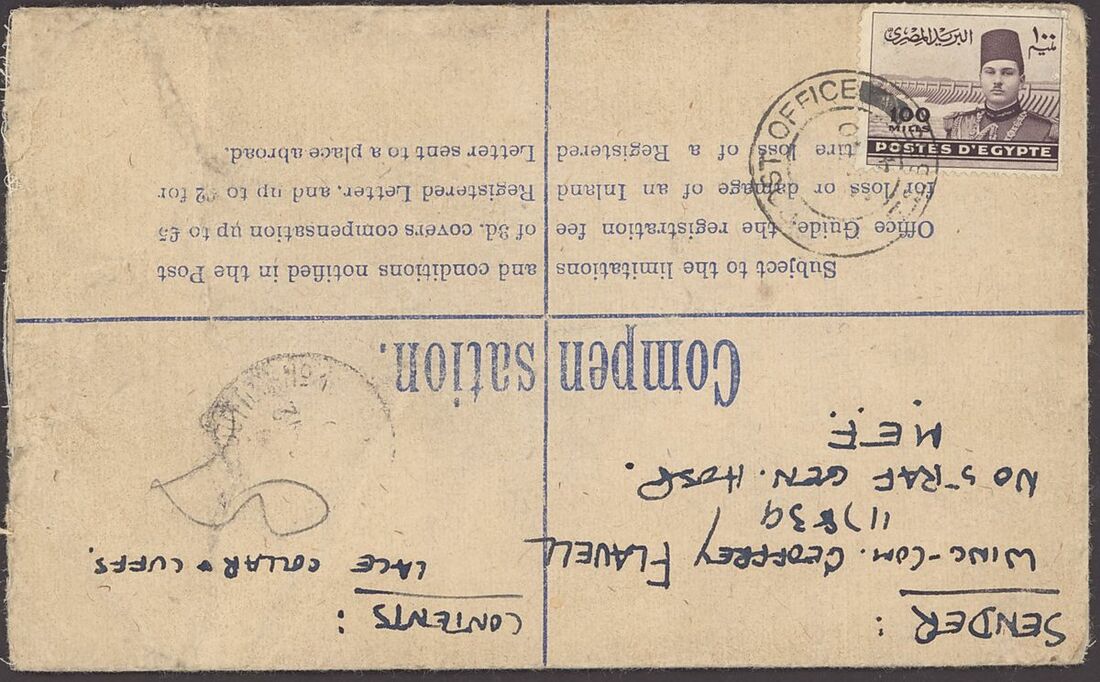 البريد المصرى
١٠٠ مليم
100
MILLS
POSTES D'EGYPTE
POST OFFICE
SENDER:
WING-COM. GEOFFREY FLAVELL
NO 5 RAF GEN. HOSP.
M.E.F.
CONTENTS:
LACE COLLAR & CUFFS.
Compensation.
Subject to the limitations and conditions notified in the Post
Office Guide, the registration fee of 3d. covers compensation up to £5
for loss or damage of an Inland Registered Letter, and up to £2 for
tire loss of a Registered Letter sent to a place abroad.